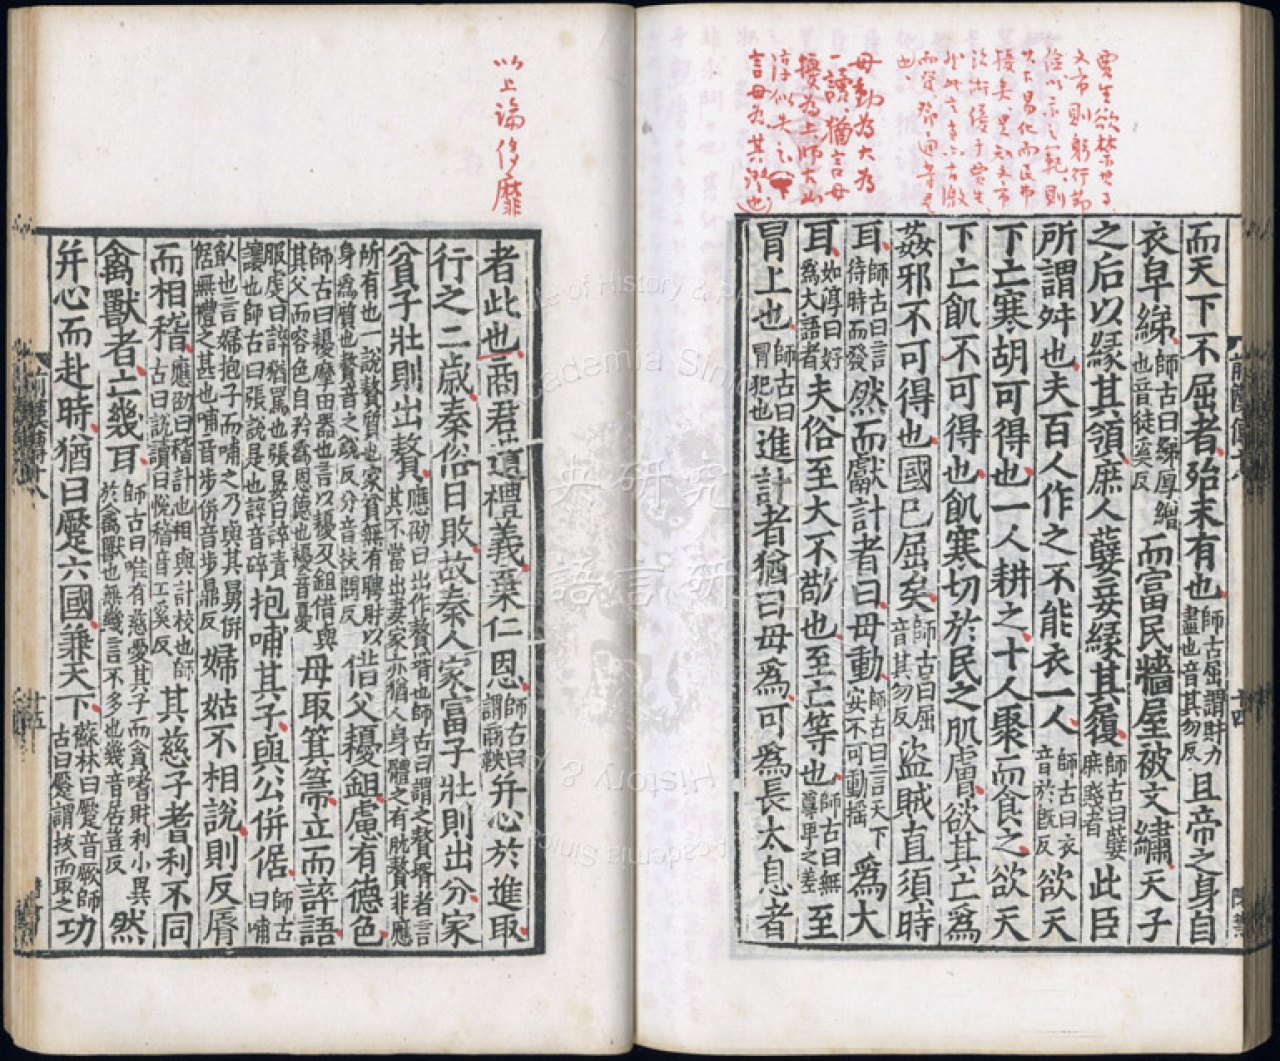 文帝則躬行節
儉以示之範則
毋動為大為
一讀猶言毋
而天下不屈者殆未有也師古屈謂財力盡也音其勿反且帝之身自
衣皁綈師古曰綈厚繒也音徒奚反而富民牆屋被文繡天子
之后以緣其領庶人孽妾緣其履師古曰孽庶賤者此臣
所謂舛也夫百人作之不能衣一人師古曰衣音於旣反欲天
下亡寒胡可得也一人耕之十人聚而食之欲天
下亡飢不可得也飢寒切於民之肌膚欲其亡爲
姦邪不可得也國已屈矣師古曰屈音其勿反盜賊直須時
耳師古曰言待時而發然而獻計者曰毋動師古曰言天下安不可動搖爲大
耳如淳曰好爲大語者夫俗至大不敬也至亡等也師古曰無尊卑之差至
冒上也師古曰冒犯也進計者猶曰毋爲可爲長太息者
以上論侈靡
者此也商君遺禮義棄仁恩師古曰謂商鞅并心於進取
行之二歲秦俗日敗故秦人家富子壯則出分家
貧子壯則出贅應劭曰出作贅壻也師古曰謂之贅壻者言其不當出妻家亦猶人身體之有肬贅非應
所有也一說贅質也家貧無有聘財以身爲質也贅音之銳反分音扶問反借父耰鉏慮有德色
師古曰耰摩田器也言以耰及鉏借與其父而容色自矜爲恩德也耰音憂毋取箕箒立而誶語
服虔曰誶猶罵也張晏曰誶責讓也師古曰張說是也誶音碎抱哺其子與公併倨師古曰哺
飤也言婦抱子而哺之乃與其舅併倨無禮之甚也哺音步併音步鼎反婦姑不相說則反脣
而相稽應劭曰稽計也相與計校也師古曰說讀曰悅稽音工奚反其慈子耆利不同
禽獸者亡幾耳師古曰唯有慈愛其子而貪嗜財利小異於禽獸也無幾言不多也幾音居豈反然
并心而赴時猶曰蹷六國兼天下蘇林曰蹷音厥師古曰蹷謂拔而取之功